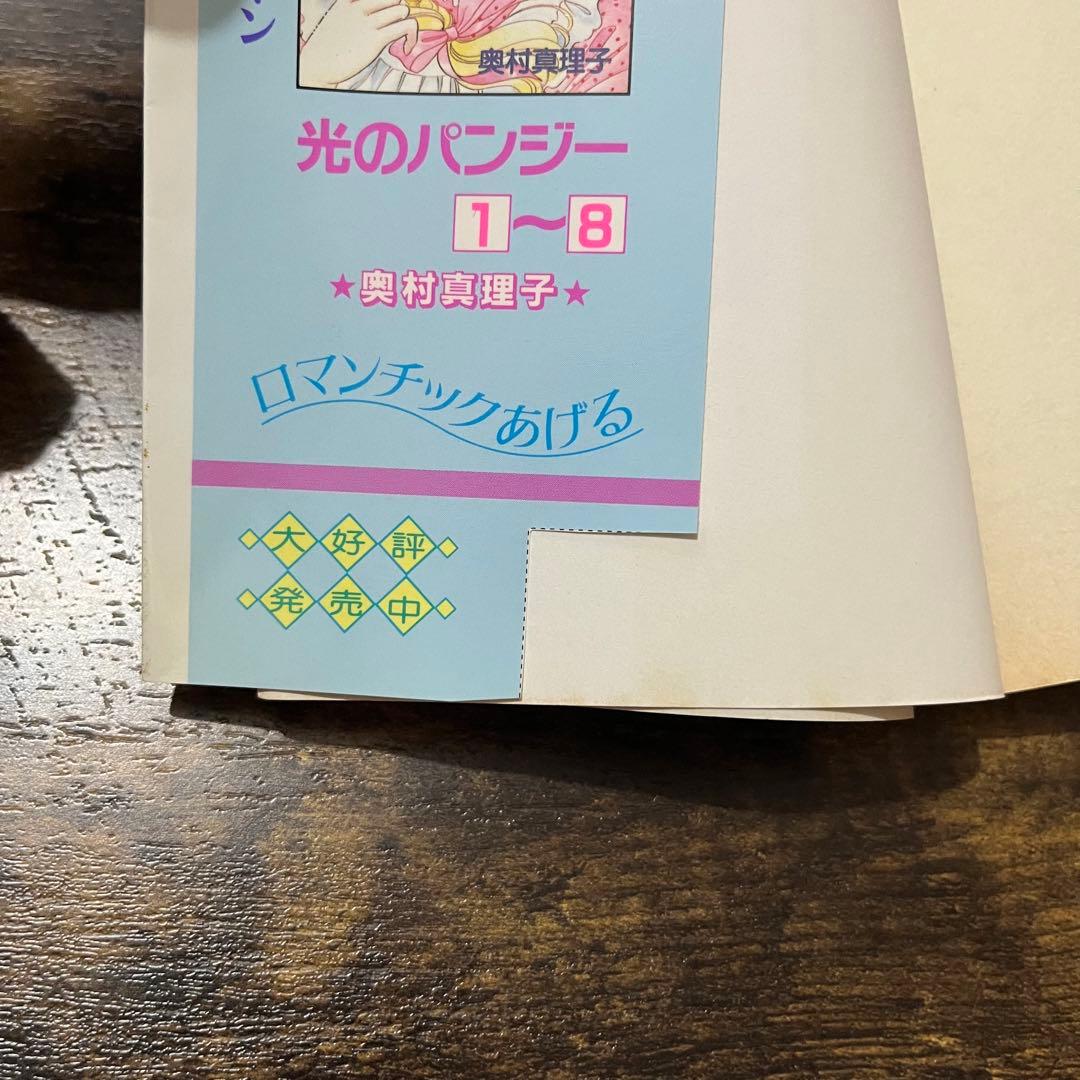 ン
奥村真理子
光のパンジー
1〜8
★奥村真理子★
ロマンチックあげる
大好評
発売中